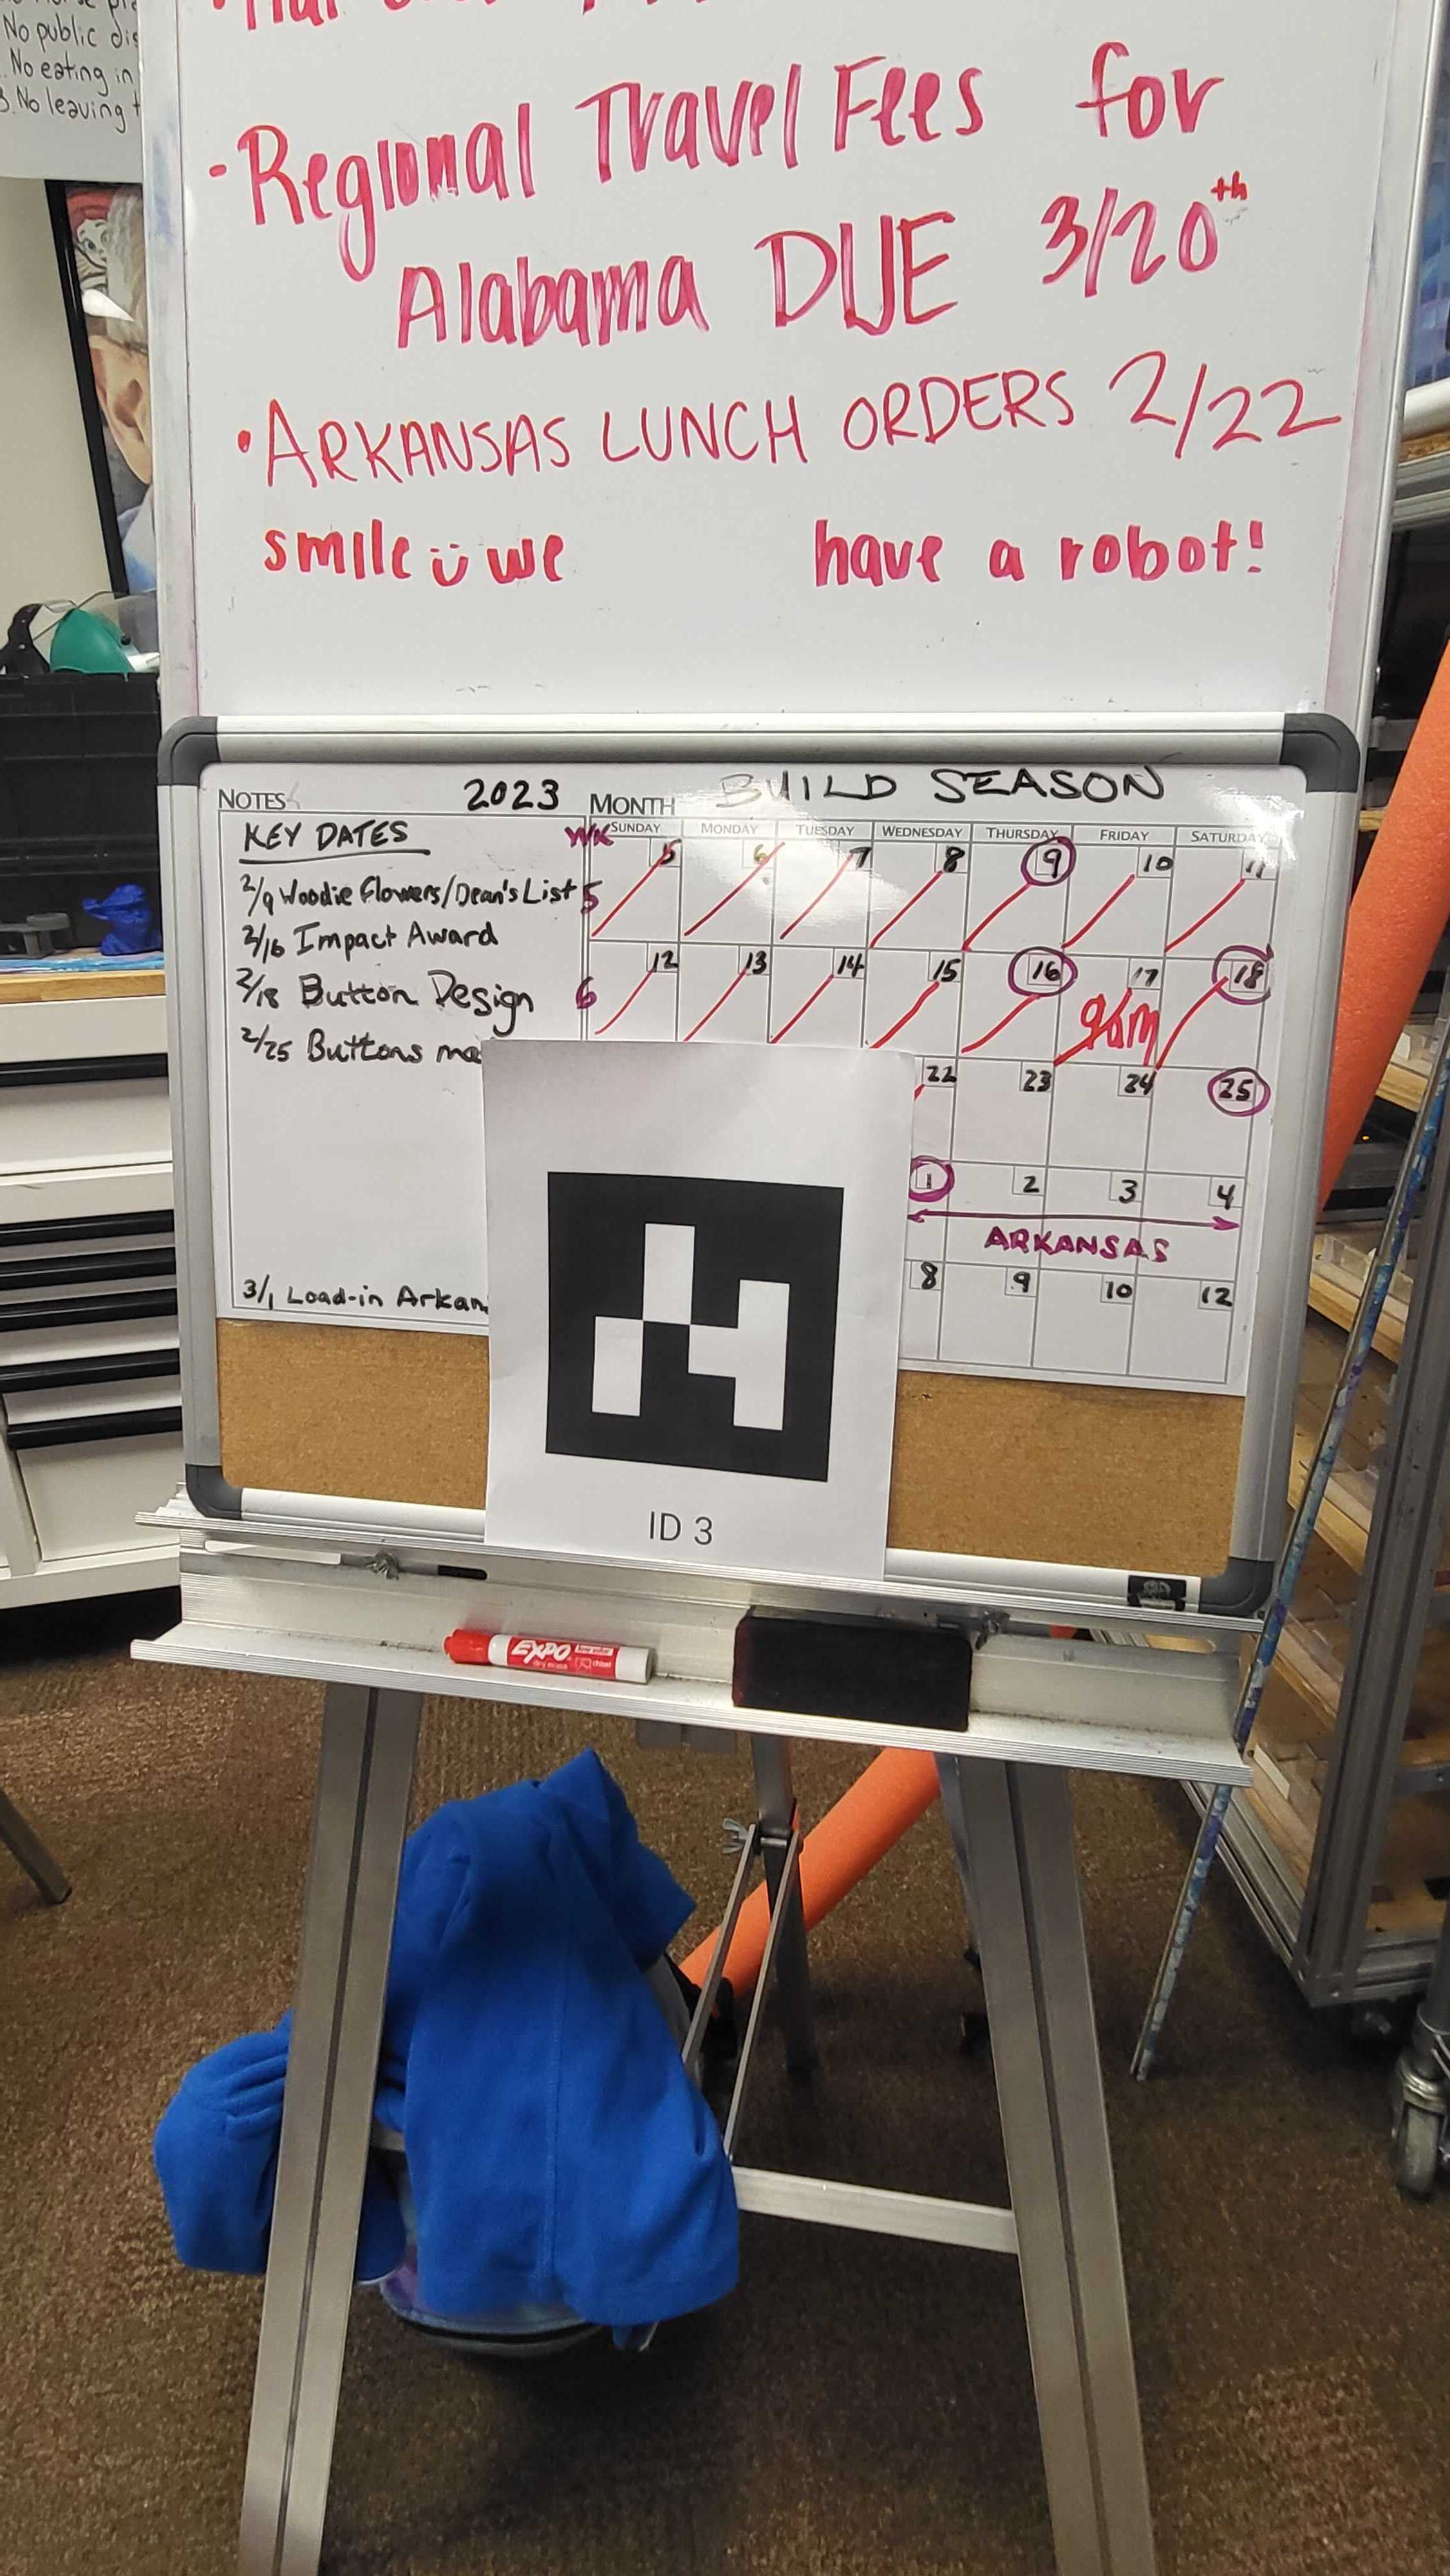 No public
No eating in
3. No leaving
- Regional Travel Fees for
Alabama DUE 3/20th
• ARKANSAS LUNCH ORDERS 2/22
smile we have a robot!
NOTES 2023 MONTH BUILD SEASON
KEY DATES
2/9 Woodie Flowers/Dean's List
2/16 Impact Award
2/18 Button Design
2/25 Buttons
3/1 Load-in
WK SUNDAY MONDAY TUESDAY WEDNESDAY THURSDAY FRIDAY SATURDAY
5 5 6 7 8 9 10 11
6 12 13 14 15 16 17 18
9am
22 23 24 25
1 2 3 4
ARKANSAS
8 9 10 12
ID 3
EXPO
dry erase chisel